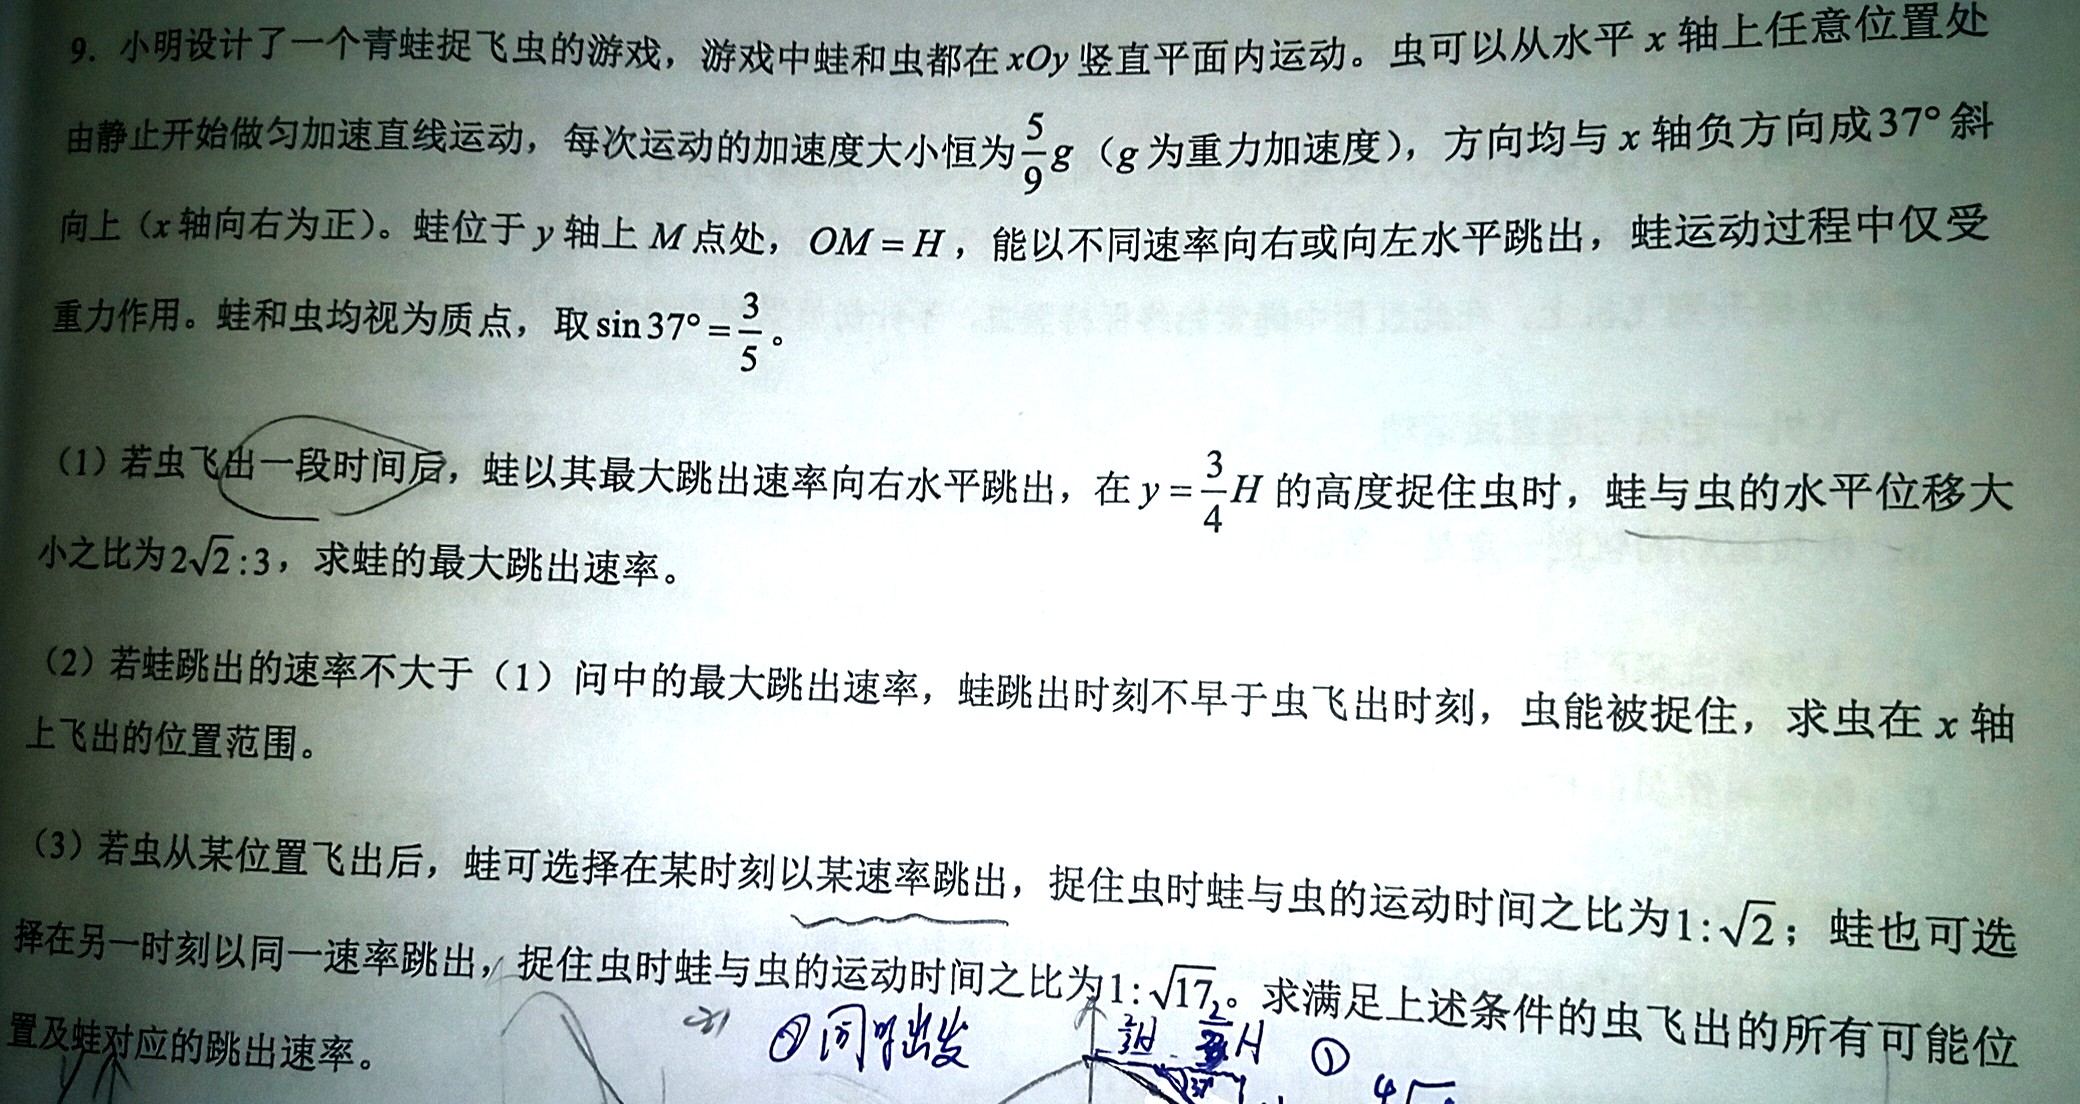 9. 小明设计了一个青蛙捉飞虫的游戏，游戏中蛙和虫都在 xOy 竖直平面内运动。虫可以从水平 x 轴上任意位置处
由静止开始做匀加速直线运动，每次运动的加速度大小恒为 5/9 g（g 为重力加速度），方向均与 x 轴负方向成 37° 斜
向上（x 轴向右为正）。蛙位于 y 轴上 M 点处，OM = H，能以不同速率向右或向左水平跳出，蛙运动过程中仅受
重力作用。蛙和虫均视为质点，取 sin 37° = 3/5。
（1）若虫飞出一段时间后，蛙以其最大跳出速率向右水平跳出，在 y = 3/4 H 的高度捉住虫时，蛙与虫的水平位移大
小之比为 2√2 : 3，求蛙的最大跳出速率。
（2）若蛙跳出的速率不大于（1）问中的最大跳出速率，蛙跳出时刻不早于虫飞出时刻，虫能被捉住，求虫在 x 轴
上飞出的位置范围。
（3）若虫从某位置飞出后，蛙可选择在某时刻以某速率跳出，捉住虫时蛙与虫的运动时间之比为 1 : √2；蛙也可选
择在另一时刻以同一速率跳出，捉住虫时蛙与虫的运动时间之比为 1 : √17。求满足上述条件的虫飞出的所有可能位
置及蛙对应的跳出速率。
② 同时出发
①